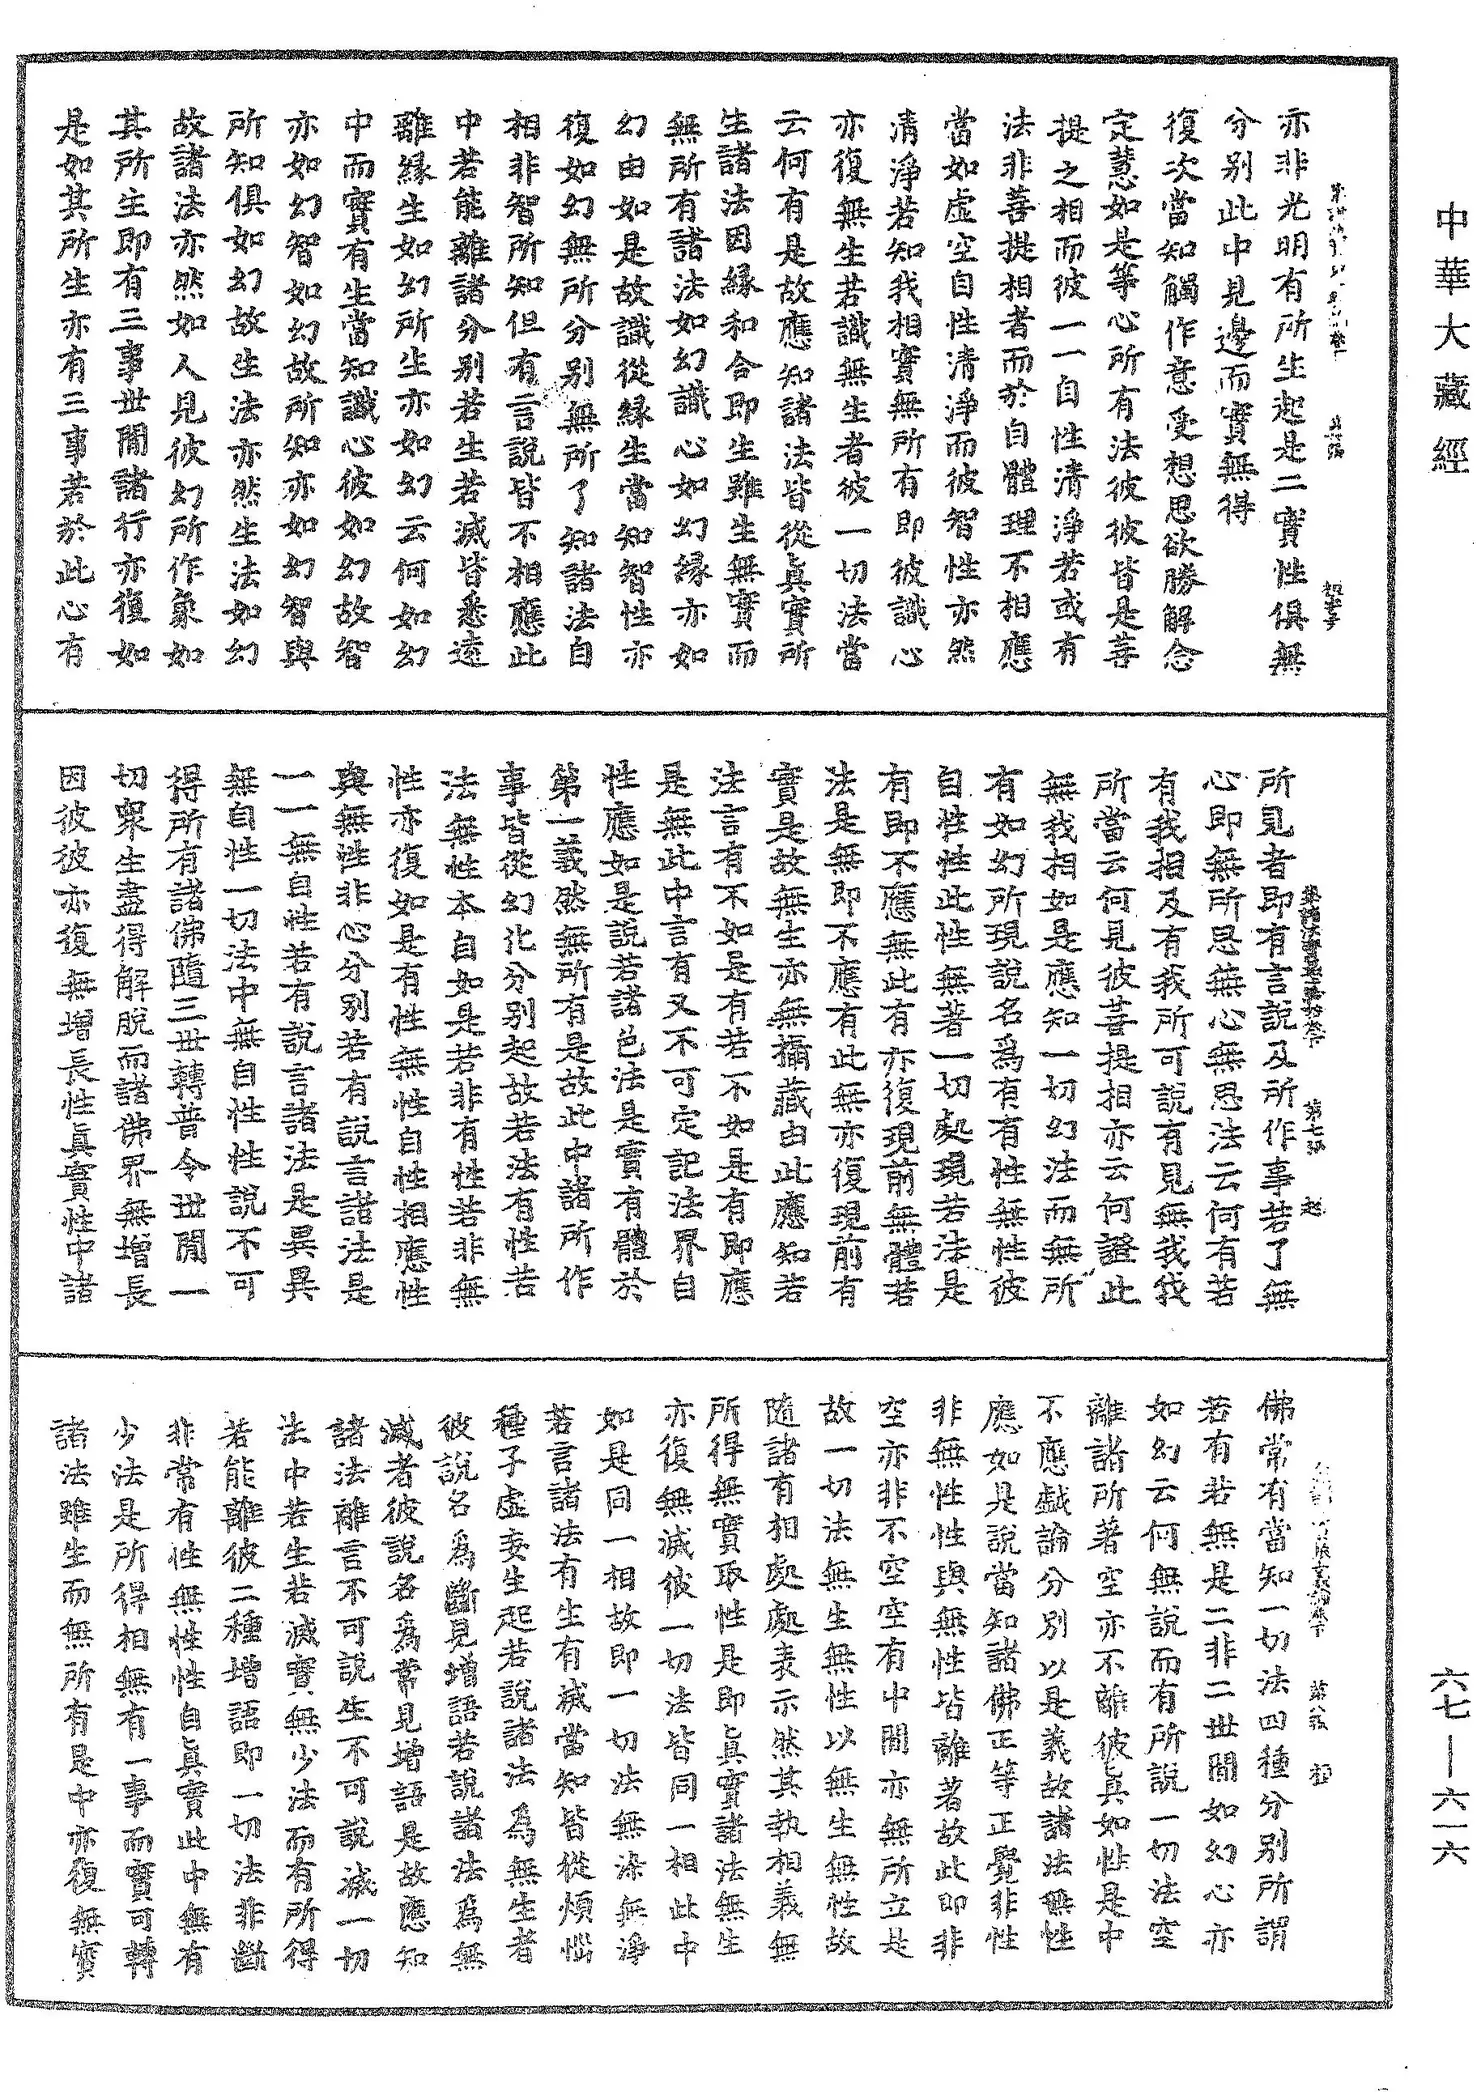 中華大藏經
六七—六一六
亦非光明有所生起是二實性俱無
分別此中見邊而實無得
復次當知觸作意受想思欲勝解念
定慧如是等心所有法彼彼皆是菩
提之相而彼一一自性清淨若或有
法非菩提相者而於自體理不相應
當如虛空自性清淨而彼智性亦然
清淨若知我相實無所有即彼識心
亦復無生若識無生者彼一切法當
云何有是故應知諸法皆從眞實所
生諸法因緣和合即生雖生無實而
無所有諸法如幻識心如幻緣亦如
幻由如是故識從緣生當知智性亦
復如幻無所分別無所了知諸法自
相非智所知但有言說皆不相應此
中若能離諸分別若生若滅皆悉遠
離緣生如幻所生亦如幻云何如幻
中而實有生當知識心彼如幻故智
亦如幻智如幻故所知亦如幻智與
所知俱如幻故生法亦然生法如幻
故諸法亦然如人見彼幻所作象如
其所生即有三事世間諸行亦復如
是如其所生亦有三事若於此心有
第七張
所見者即有言說及所作事若了無
心即無所思無心無思法云何有若
有我相及有我所可說有見無我我
所當云何見彼菩提相亦云何證此
無我相如是應知一切幻法而無所
有如幻所現說名爲有有性無性彼
自性性此性無著一切處現若法是
有即不應無此有亦復現前無體若
法是無即不應有此無亦復現前有
實是故無生亦無攝藏由此應知若
法言有不如是有若不如是有即應
是無此中言有又不可定記法界自
性應如是說若諸色法是實有體於
第一義然無所有是故此中諸所作
事皆從幻化分別起故若法有性若
法無性本自如是若非有性若非無
性亦復如是有性無性自性相應性
與無性非心分別若有說言諸法是
一一無自性若有說言諸法是異異
無自性一切法中無自性性說不可
得所有諸佛隨三世轉普令世間一
切衆生盡得解脫而諸佛界無增長
因彼彼亦復無增長性眞實性中諸
佛常有當知一切法四種分別所謂
若有若無是二非二世間如幻心亦
如幻云何無說而有所說一切法空
離諸所著空亦不離彼眞如性是中
不應戲論分別以是義故諸法無性
應如是說當知諸佛正等正覺非性
非無性性與無性皆離著故此即非
空亦非不空空有中間亦無所立是
故一切法無生無性以無生無性故
隨諸有相處處表示然其執相義無
所得無實取性是即眞實諸法無生
亦復無滅彼一切法皆同一相此中
如是同一相故即一切法無染無淨
若言諸法有生有滅當知皆從煩惱
種子虛妄生起若說諸法爲無生者
彼說名爲斷見增語若說諸法爲無
滅者彼說名爲常見增語是故應知
諸法離言不可說生不可說滅一切
法中若生若滅實無少法而有所得
若能離彼二種增語即一切法非斷
非常有性無性性自眞實此中無有
少法是所得相無有一事而實可轉
諸法雖生而無所有是中亦復無實